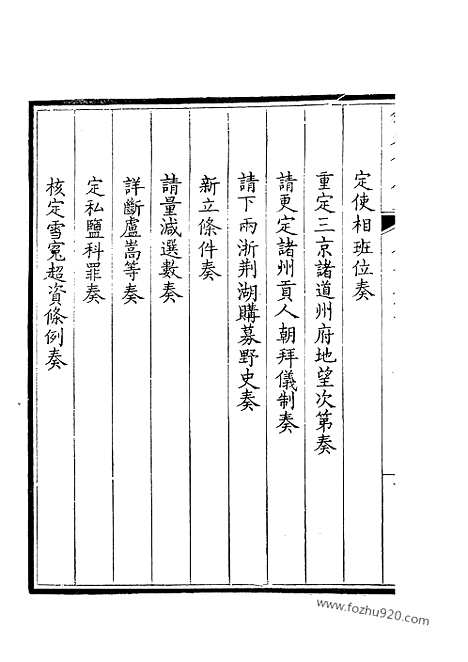 定使相班位奏
重定三京諸道州府地望次第奏
請更定諸州貢人朝拜儀制奏
請下兩浙荆湖購募野史奏
新立條件奏
請量減選數奏
詳斷盧嵩等奏
定私鹽科罪奏
核定雪冤超資條例奏
www.fozhu920.com